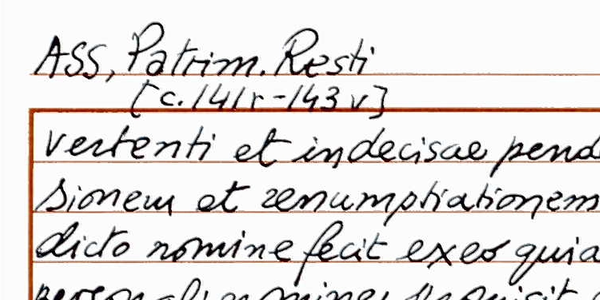 ASS, Patrim. Resti
[c. 141r-143v]
vertenti et indecisae pend
sionem et renumptiationem
dicto nomine fecit exeo quia